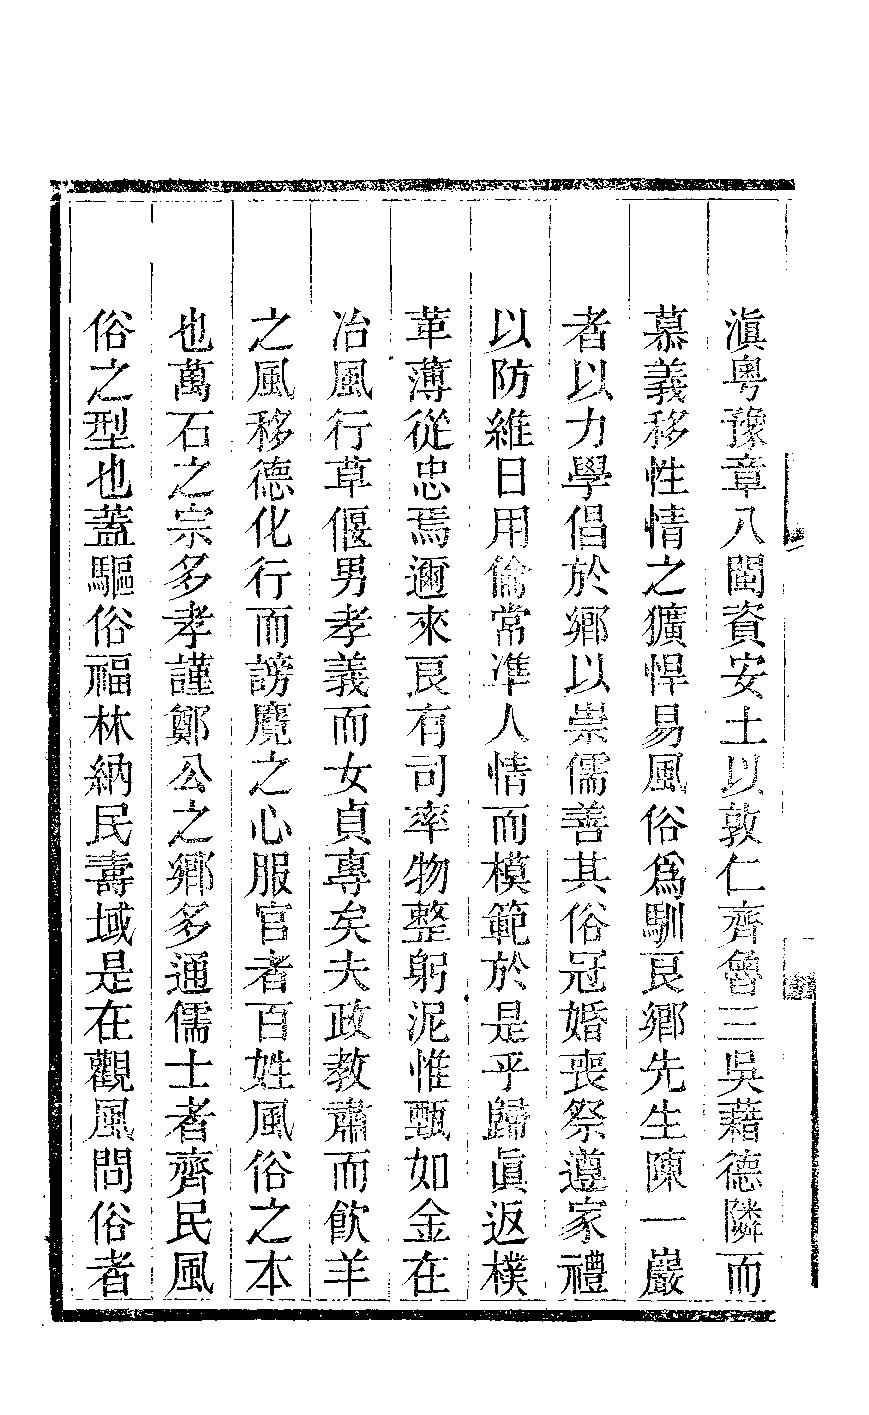 滇粵豫章八閩資安土以敦仁齊魯三吳藉德隣而
慕義移性情之獷悍易風俗爲馴良鄉先生陳一巖
者以力學倡於鄉以崇儒善其俗冠婚喪祭遵家禮
以防維日用倫常準人情而模範於是乎歸眞返樸
革薄從忠焉邇來良有司率物整躬泥惟甄如金在
冶風行草偃男孝義而女貞專矣夫政教肅而飲羊
之風移德化行而謗麑之心服官者百姓風俗之本
也萬石之宗多孝謹鄭公之鄉多通儒士者齊民風
俗之型也蓋驅俗福林納民壽域是在觀風問俗者